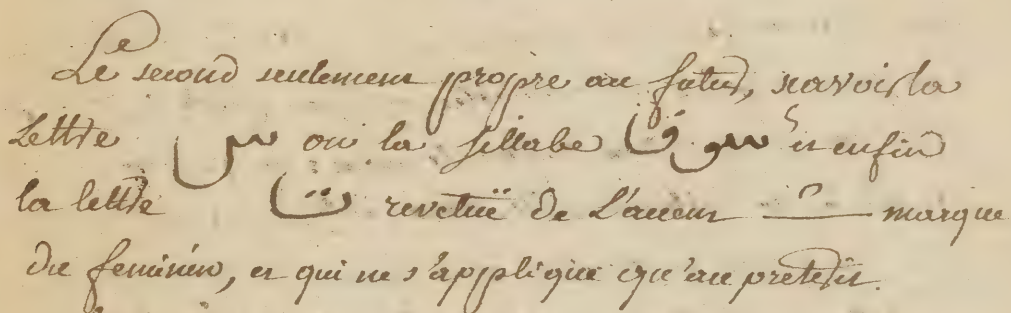 Le second seulement propre au futur, savoir la
Lettre س ou la sillabe سوف et enfin
la lettre ت revetuë de L'accent ـْ marque
du feminin, et qui ne s'applique qu'au preterit.